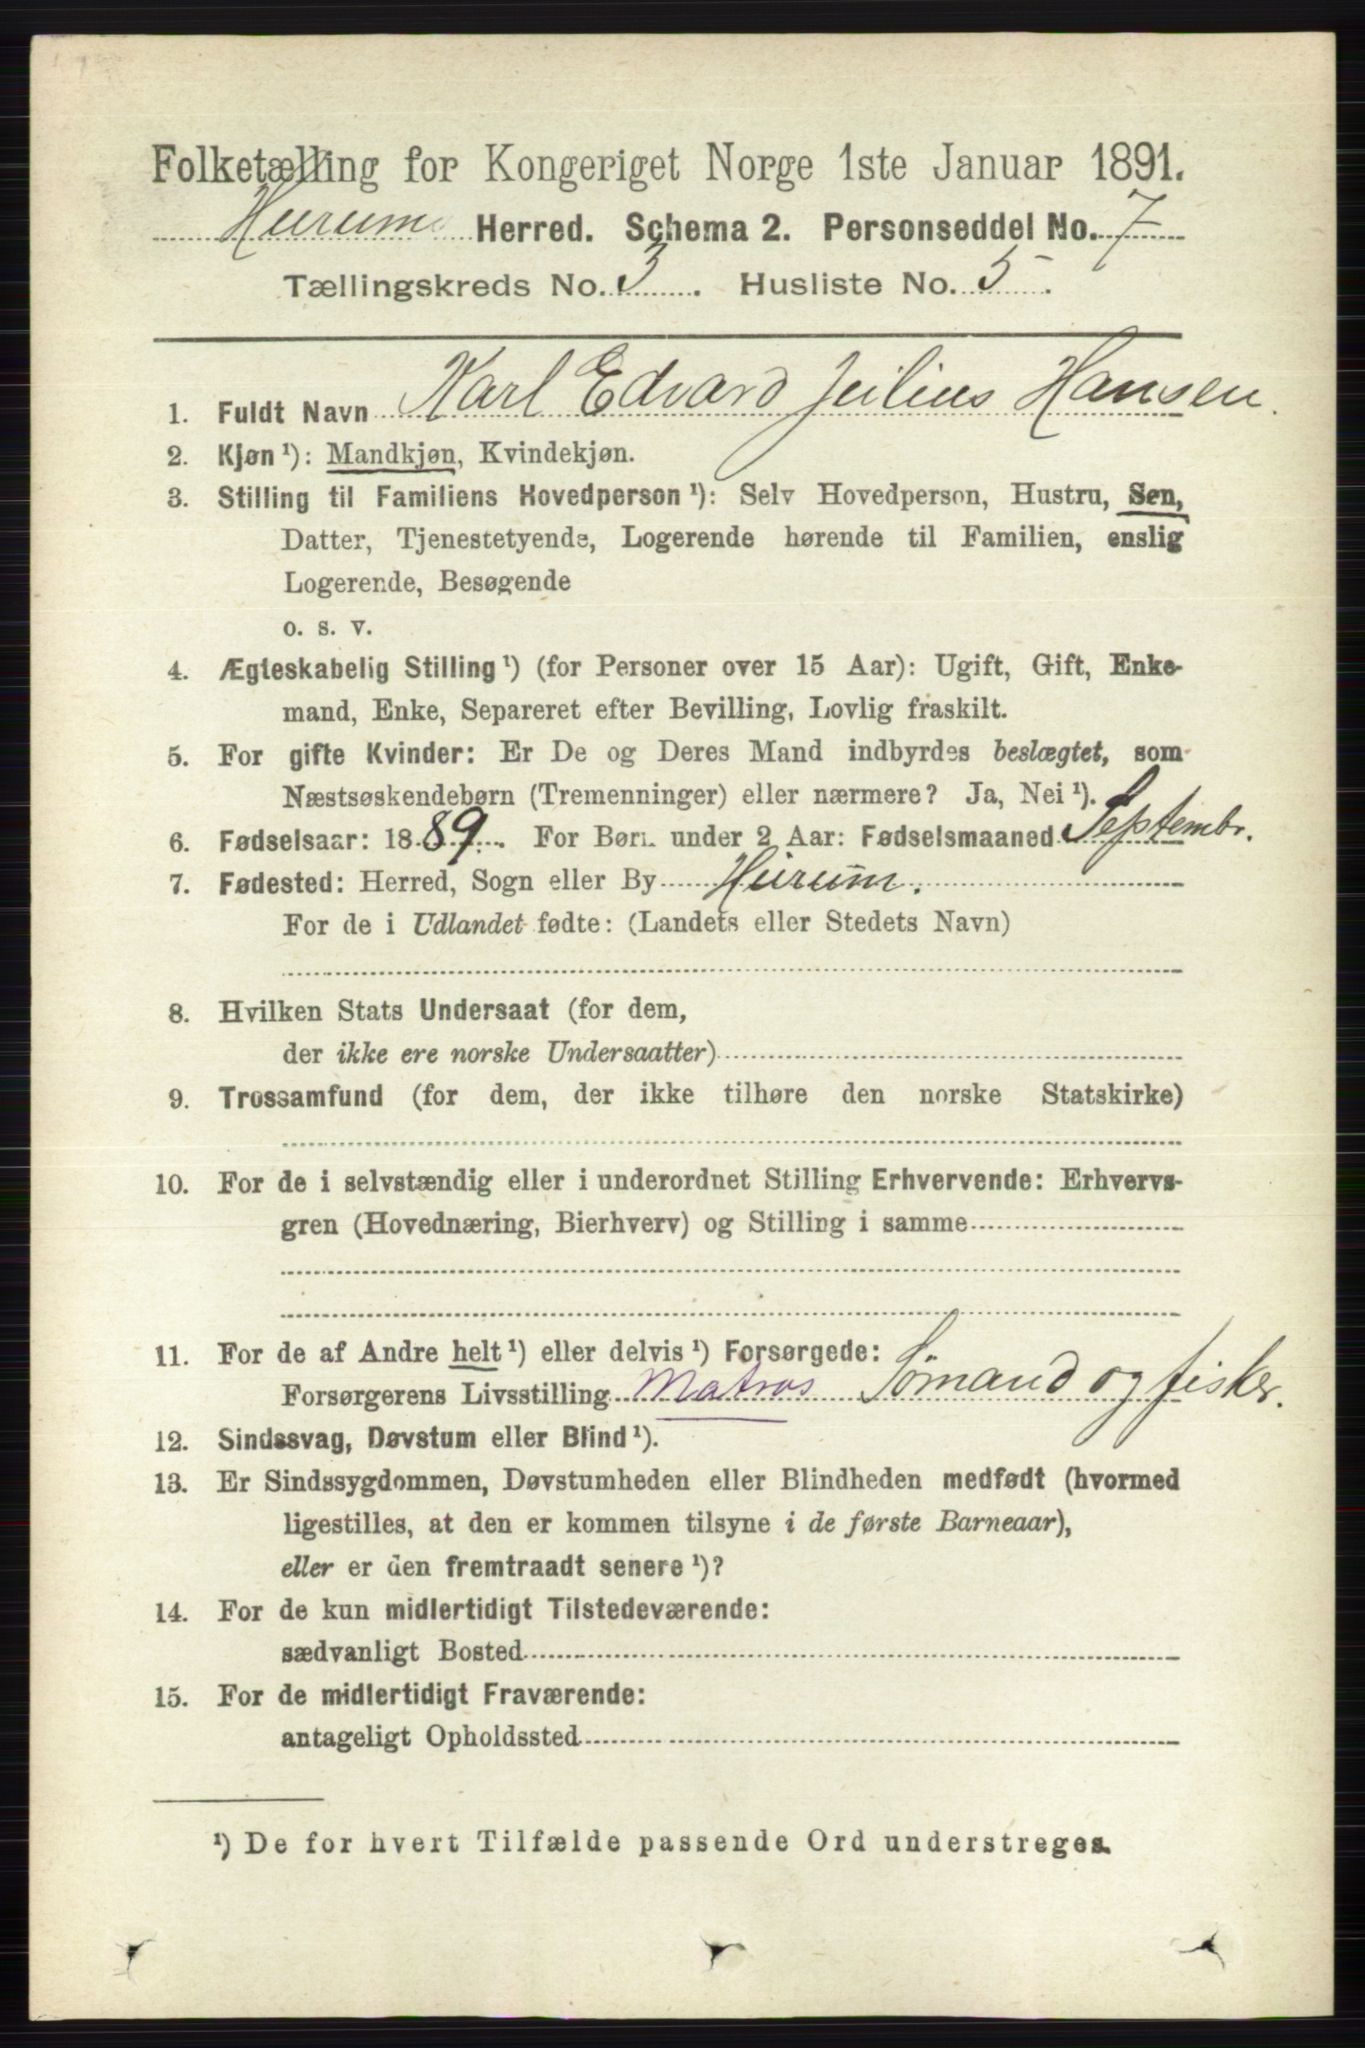 Folketælling for Kongeriget Norge 1ste Januar 1891.
Hurum Herred. Schema 2. Personseddel No. 7
Tællingskreds No. 3. Husliste No. 5.
1. Fuldt Navn Karl Edvard Julius Hansen.
2. Kjøn ¹): Mandkjøn, Kvindekjøn.
3. Stilling til Familiens Hovedperson ¹): Selv Hovedperson, Hustru, Søn,
Datter, Tjenestetyende, Logerende hørende til Familien, enslig
Logerende, Besøgende
o. s. v.
4. Ægteskabelig Stilling ¹) (for Personer over 15 Aar): Ugift, Gift, Enke-
mand, Enke, Separeret efter Bevilling, Lovlig fraskilt.
5. For gifte Kvinder: Er De og Deres Mand indbyrdes beslægtet, som
Næstsøskendebørn (Tremenninger) eller nærmere? Ja, Nei ¹).
6. Fødselsaar: 1889. For Børn under 2 Aar: Fødselsmaaned Septembr.
7. Fødested: Herred, Sogn eller By Hurum.
For de i Udlandet fødte: (Landets eller Stedets Navn)
8. Hvilken Stats Undersaat (for dem,
der ikke ere norske Undersaatter)
9. Trossamfund (for dem, der ikke tilhøre den norske Statskirke)
10. For de i selvstændig eller i underordnet Stilling Erhvervende: Erhvervs-
gren (Hovednæring, Bierhverv) og Stilling i samme
11. For de af Andre helt ¹) eller delvis ¹) Forsørgede:
Forsørgerens Livsstilling Matros Sømand og fisker.
12. Sindssvag, Døvstum eller Blind ¹).
13. Er Sindssygdommen, Døvstumheden eller Blindheden medfødt (hvormed
ligestilles, at den er kommen tilsyne i de første Barneaar),
eller er den fremtraadt senere ¹)?
14. For de kun midlertidigt Tilstedeværende:
sædvanligt Bosted
15. For de midlertidigt Fraværende:
antageligt Opholdssted
¹) De for hvert Tilfælde passende Ord understreges.